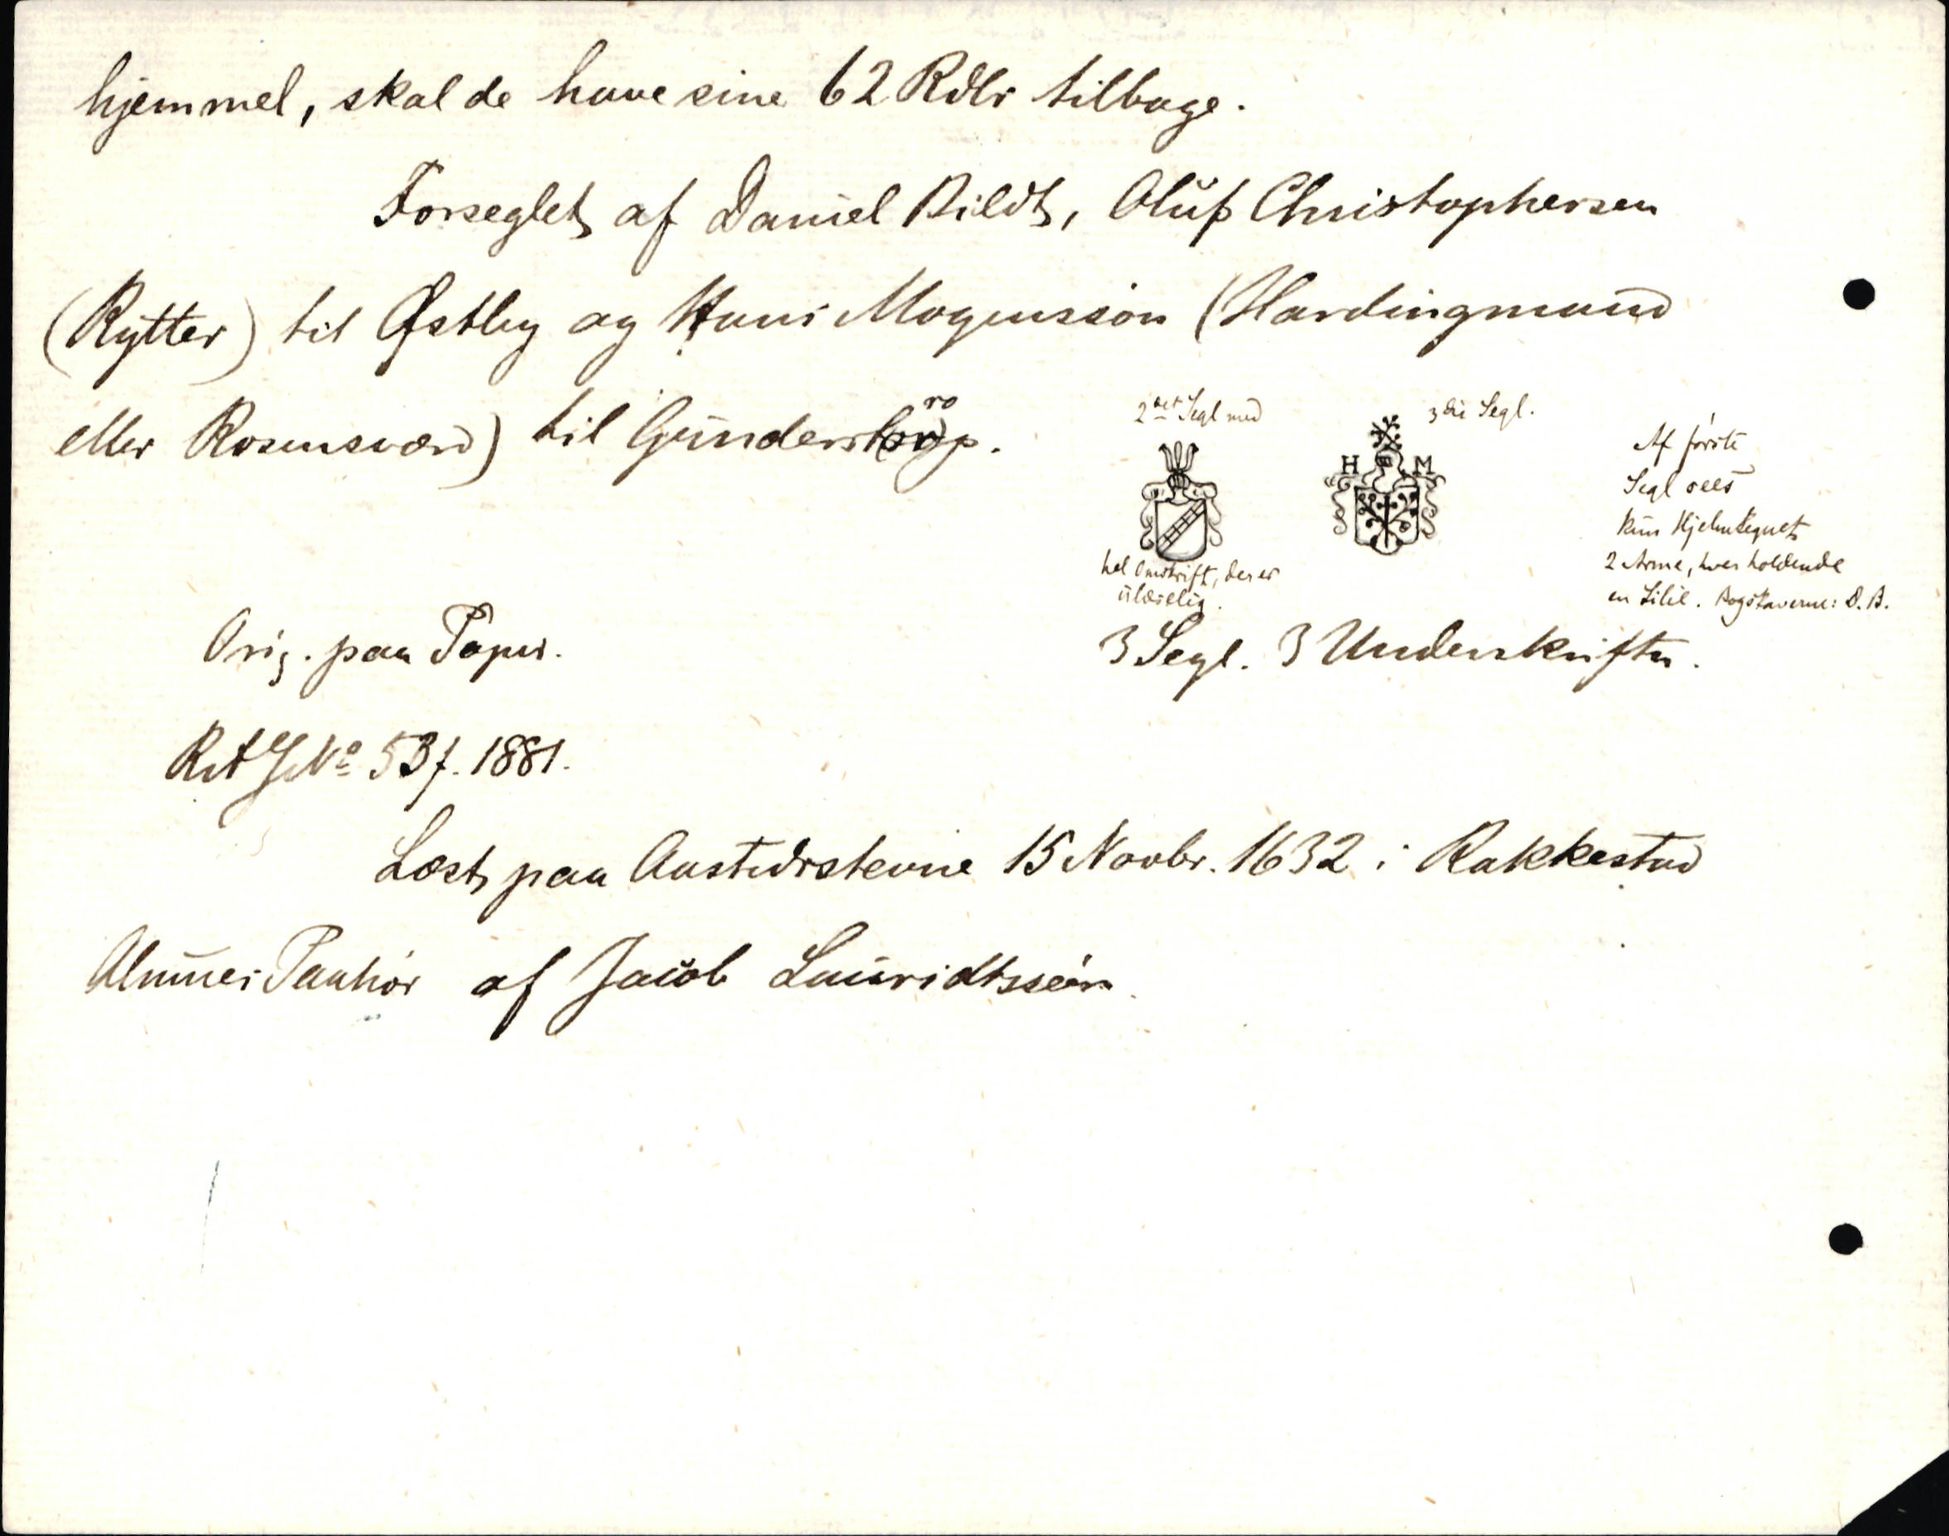 hjemmel, skal de have sine 62 Rdlr tilbage.
Forseglet af Daniel Bildt, Oluf Christophersen
(Rytter) til Østby og Hans Mogenssøn (Hardingmand
eller Rosensværd) til Gunderstrop.
2det Segl med
3die Segl.
H M
Af første
Segl sees
kun Hjelmtegnet
2 Arme, hver holdende
en Lilie. Bogstaverne: D. B.
hel Omskrift, der er
ulæselig.
Orig. paa Papir.
3 Segl. 3 Underskrifter.
No 53 f. 1881.
Læst paa 15 Novbr. 1632 i Rakkestad
af Jacob Lauridtssøn